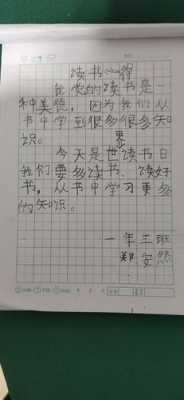 读书心得
我爱的读书是一
种美德，因为我们从
书中学到很多很多知
识。
今天是世界读书日
我们要多读书、读好
书，从书中学习更多
的知识。
一年三班
郑安然